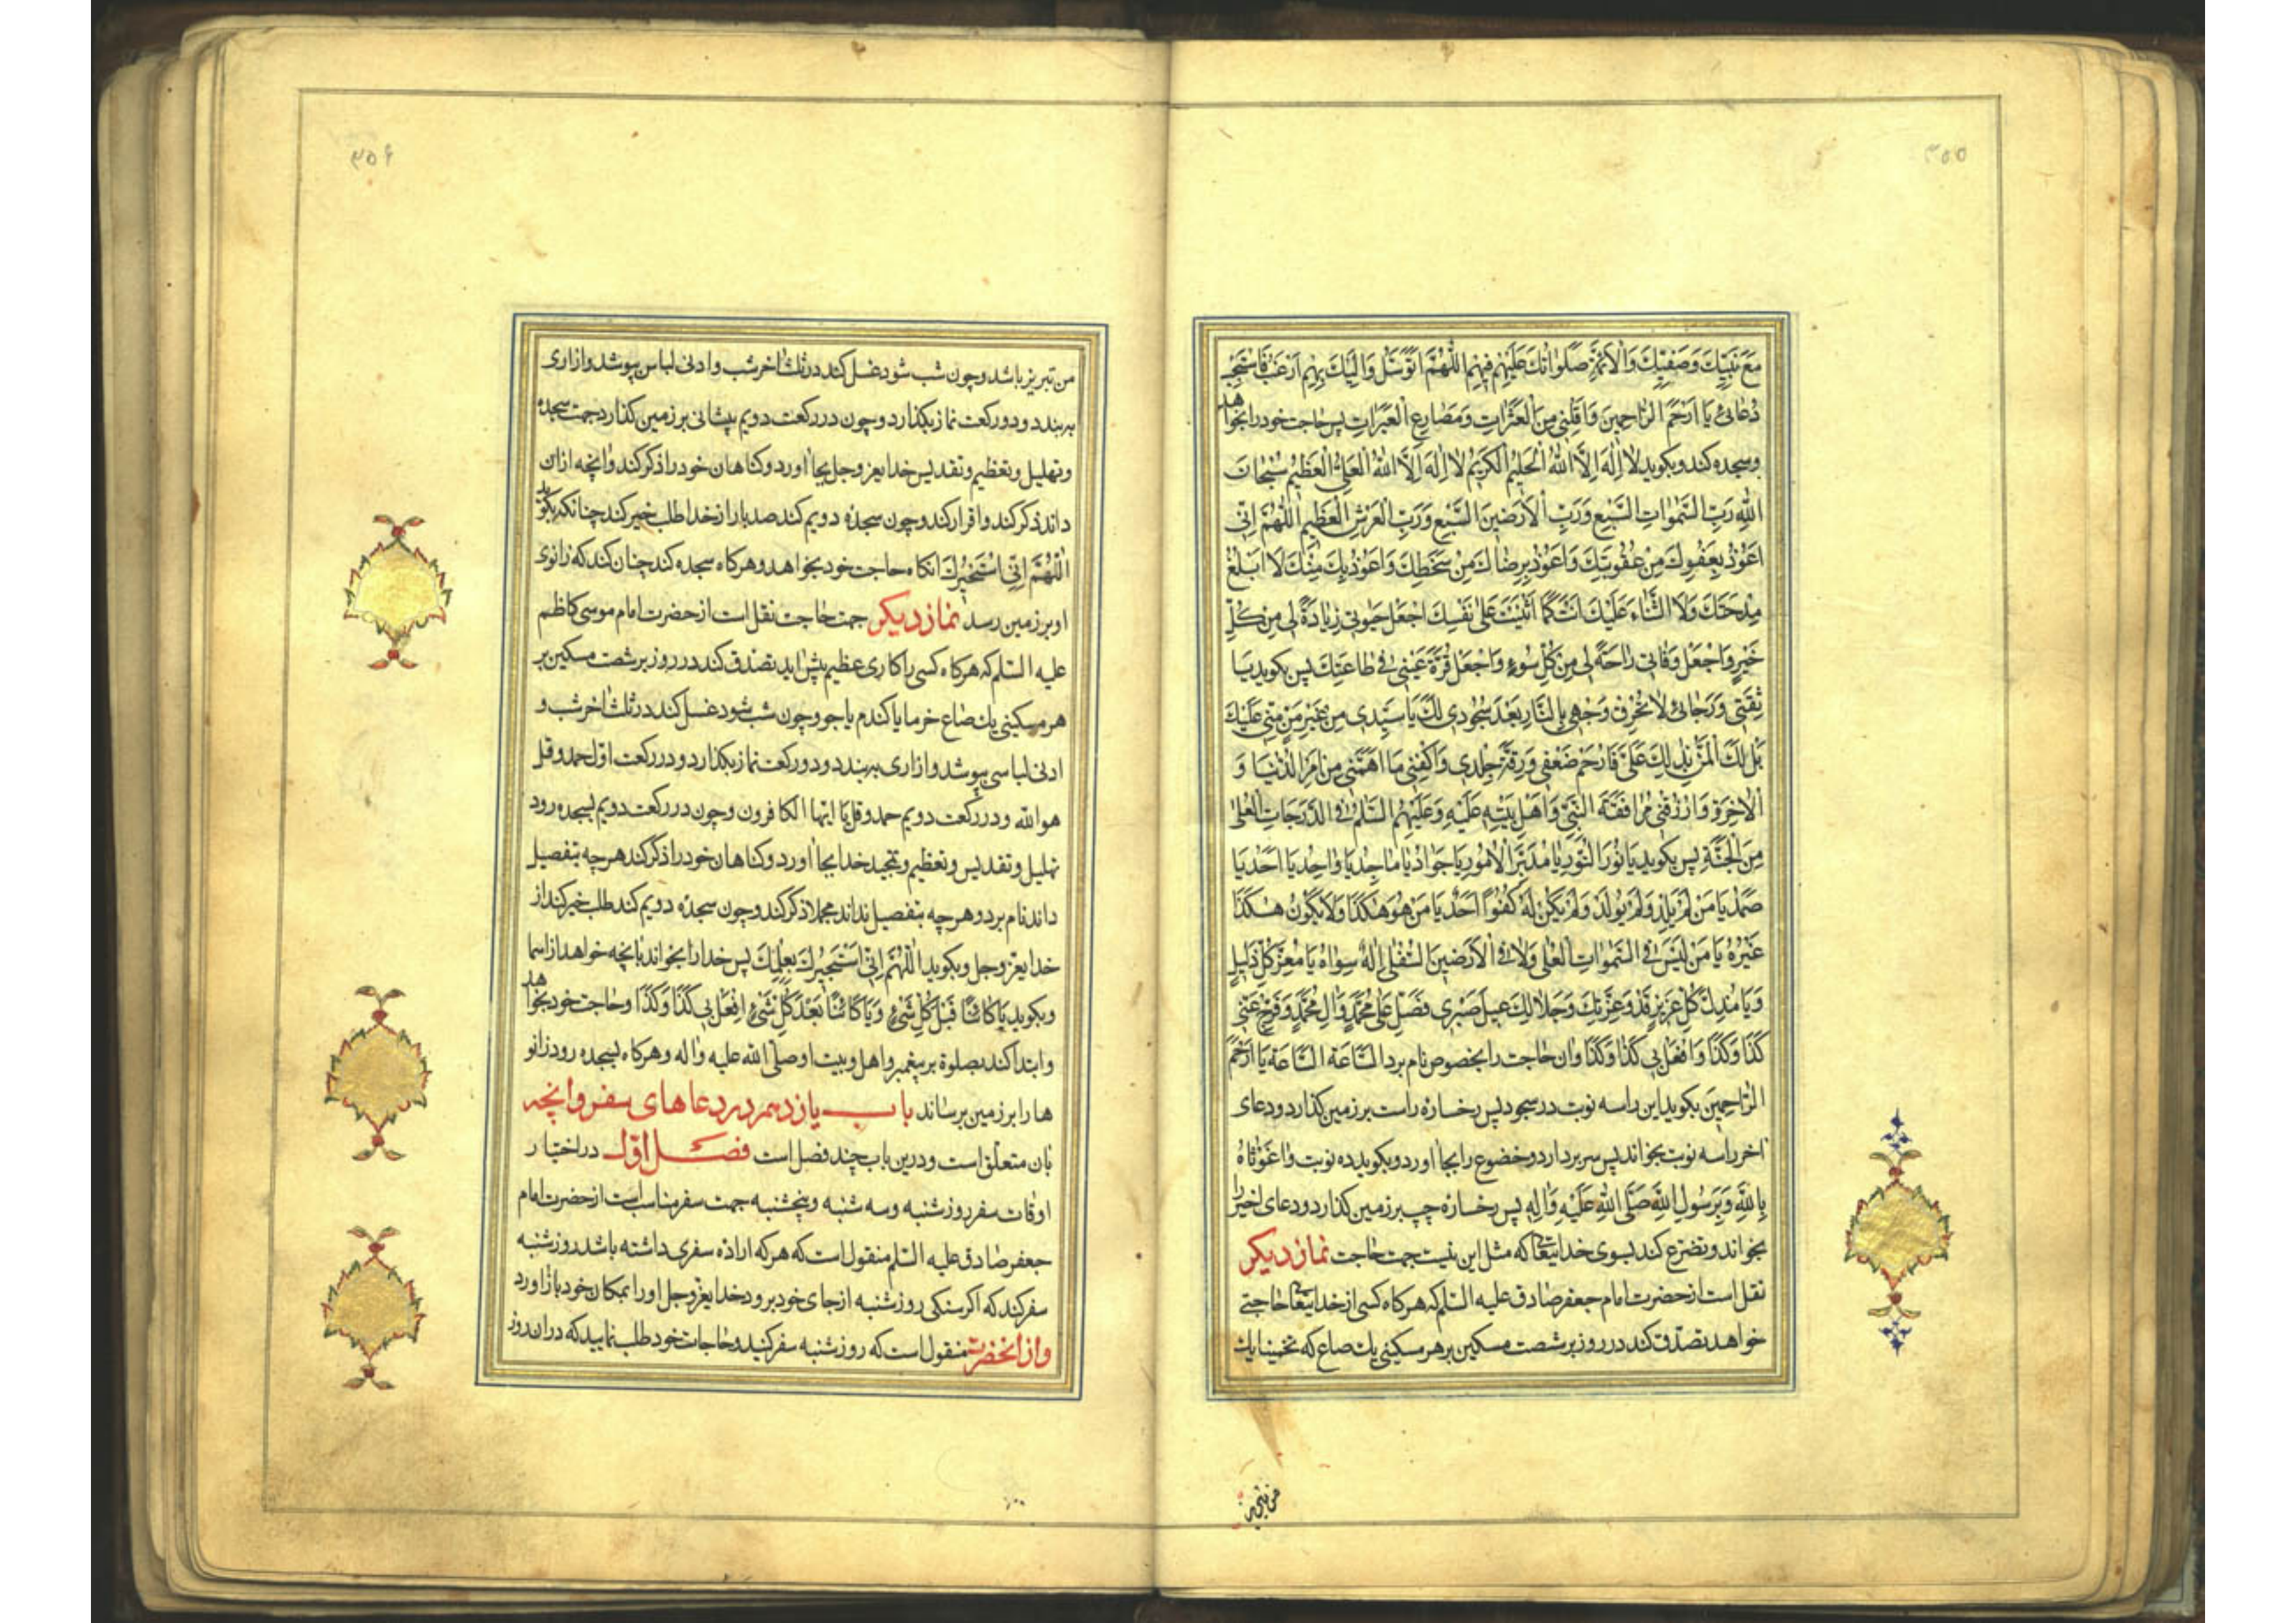 ۳۵۵
مَعَ نَبِيِّكَ وَصَفِيِّكَ وَالْاَئِمَّةِ صَلَوٰاتُكَ عَلَيْهِمْ فَبِهِمُ اللّٰهُمَّ اَتَوَسَّلُ وَاِلَيْكَ بِهِمْ اَرْغَبُ فَاسْتَجِبْ
دُعٰائى يٰا اَرْحَمَ الرّٰاحِمينَ وَاَقِلْنى مِنَ الْعَثَرٰاتِ وَمَصٰارِعِ الْعَبَرٰاتِ پس حاجت خود را بخواهد
وسجده كند وبكويد لٰا اِلٰهَ اِلَّا اللّٰهُ الْحَليمُ الْكَريمُ لٰا اِلٰهَ اِلَّا اللّٰهُ الْعَلِىُّ الْعَظيمُ سُبْحٰانَ
اللّٰهِ رَبِّ السَّمٰوٰاتِ السَّبْعِ وَرَبِّ الْاَرَضينَ السَّبْعِ وَرَبِّ الْعَرْشِ الْعَظيمِ اَللّٰهُمَّ اِنّى
اَعُوذُ بِعَفْوِكَ مِنْ عُقُوبَتِكَ وَاَعُوذُ بِرِضٰاكَ مِنْ سَخَطِكَ وَاَعُوذُ بِكَ مِنْكَ لٰا اَبْلُغُ
مِدْحَتَكَ وَلَا الثَّنٰاءَ عَلَيْكَ اَنْتَ كَمٰا اَثْنَيْتَ عَلٰى نَفْسِكَ اجْعَلْ حَيٰوتى زِيٰادَةً لى مِنْ كُلِّ
خَيْرٍ وَاجْعَلْ وَفٰاتى رٰاحَةً لى مِنْ كُلِّ سُوءٍ وَاجْعَلْ قُرَّةَ عَيْنى فى طٰاعَتِكَ پس بكويد يٰا
ثِقَتى وَرَجٰائى لٰا تُحْرِقْ وَجْهى بِالنّٰارِ بَعْدَ سُجُودى لَكَ يٰا سَيِّدى مِنْ غَيْرِ مَنٍّ مِنّى عَلَيْكَ
بَلْ لَكَ الْمَنُّ بِذٰلِكَ عَلَىَّ فَارْحَمْ ضَعْفى وَرِقَّةَ جِلْدى وَاكْفِنى مٰا اَهَمَّنى مِنْ اَمْرِ الدُّنْيٰا وَ
الْاٰخِرَةِ وَارْزُقْنى مُرٰافَقَةَ النَّبِىِّ وَاَهْلِ بَيْتِهِ عَلَيْهِ وَعَلَيْهِمُ السَّلٰمُ فِى الدَّرَجٰاتِ الْعُلٰى
مِنَ الْجَنَّةِ پس بكويد يٰا نُورَ النُّورِ يٰا مُدَبِّرَ الْاُمُورِ يٰا جَوٰادُ يٰا مٰاجِدُ يٰا وٰاحِدُ يٰا اَحَدُ يٰا
صَمَدُ يٰا مَنْ لَمْ يَلِدْ وَلَمْ يُولَدْ وَلَمْ يَكُنْ لَهُ كُفُوًا اَحَدٌ يٰا مَنْ هُوَ هٰكَذٰا وَلٰا يَكُونُ هٰكَذٰا
غَيْرُهُ يٰا مَنْ لَيْسَ فِى السَّمٰوٰاتِ الْعُلٰى وَلٰا فِى الْاَرَضينَ السُّفْلٰى اِلٰهٌ سِوٰاهُ يٰا مُعِزَّ كُلِّ ذَليلٍ
وَيٰا مُذِلَّ كُلِّ عَزيزٍ قَدْ وَعِزَّتِكَ وَجَلٰالِكَ عيلَ صَبْرى فَصَلِّ عَلٰى مُحَمَّدٍ وَاٰلِ مُحَمَّدٍ وَفَرِّجْ عَنّى
كَذٰا وَكَذٰا وَافْعَلْ بى كَذٰا وَكَذٰا وان حاجت را بخصوص نام برد السّٰاعَةَ السّٰاعَةَ يٰا اَرْحَمَ
الرّٰاحِمينَ بكويد اين را سه نوبت در سجود پس رخسازه راست بر زمين كذارد ودعاى
اخر را سه نوبت بخواند پس سر بردارد وخضوع را بجا اورد وبكويد ده نوبت وٰا غَوْثٰاهُ
بِاللّٰهِ وَبِرَسُولِ اللّٰهِ صَلَّى اللّٰهُ عَلَيْهِ وَاٰلِهِ پس رخسازه چپ بر زمين كذارد ودعاى اخير را
بخواند وتضرع كند بسوى خدايتعا كه مثل اين نيت جهت حاجت نماز ديكر
نقل است از حضرت امام جعفر صادق عليه السلم كه هر كاه كسى از خدايتعا حاجتى
خواهد تصدق كند در روز بر شصت مسكين بر هر مسكينى يك صاع كه تخمينا يك
من تبريز
۳۵۶
من تبريز باشد وچون شب شود غسل كند در ثلث اخر شب وادنى لباس پوشد وازارى
ببندد ودو ركعت نماز بكذارد وچون در ركعت دويم پيشانى بر زمين كذارد جهت سجده
وتهليل وتعظيم وتقديس خدايعز وجل بجا اورد وكناهان خود را ذكر كند وانچه از ان
داند ذكر كند واقرار كند وچون سجده دويم كند صد بار از خدا طلب خير كند چنانكه بكويد
اَللّٰهُمَّ اِنّى اَسْتَخيرُكَ انكاه حاجت خود بخواهد وهر كاه سجده كند چنان كند كه زانوى
او بر زمين رسد نماز ديكر جهت حاجت نقل است از حضرت امام موسى كاظم
عليه السلم كه هر كاه كسى را كارى عظيم پيش ايد تصدق كند در روز بر شصت مسكين بر
هر مسكينى يك صاع خرما يا كندم يا جو وچون شب شود غسل كند در ثلث اخر شب و
ادنى لباسى پوشد وازارى ببندد ودو ركعت نماز بكذارد ودر ركعت اول حمد وقل
هو الله ودر ركعت دويم حمد وقل يا ايها الكافرون وچون در ركعت دويم بسجده رود
تهليل وتقديس وتعظيم وتمجيد خدا بجا اورد وكناهان خود را ذكر كند هر چه بتفصيل
داند نام برد وهر چه بتفصيل نداند مجملا ذكر كند وچون سجده دويم كند طلب خير كند از
خدايعز وجل وبكويد اَللّٰهُمَّ اِنّى اَسْتَخيرُكَ بِعِلْمِكَ پس خدا را بخواند بانچه خواهد از اسما
وبكويد يٰا كٰائِنًا قَبْلَ كُلِّ شَىْءٍ وَيٰا كٰائِنًا بَعْدَ كُلِّ شَىْءٍ اِفْعَلْ بى كَذٰا وَكَذٰا وحاجت خود بخواهد
وابتدا كند بصلوة بر پيغمبر واهل وبيت او صلى الله عليه واله وهر كاه بسجده رود زانو
ها را بر زمين برساند باب يازدهم در دعاهاى سفر وانچه
بان متعلق است ودرين باب چند فصل است فصل اول در اختيار
اوقات سفر روز شنبه وسه شنبه وپنجشنبه جهت سفر مناسب است از حضرت امام
جعفر صادق عليه السلم منقول است كه هر كه اراده سفرى داشته باشد روز شنبه
سفر كند كه اكر سنكى روز شنبه از جاى خود برود خدايعز وجل او را بمكان خود باز اورد
واز انحضرت منقول است كه روز شنبه سفر كنيد وحاجات خود طلب نماييد كه در ان روز